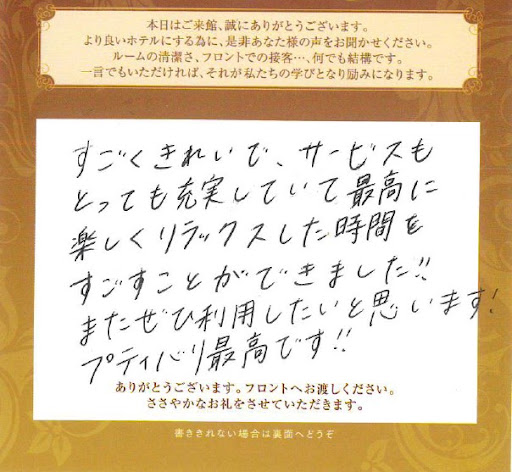 本日はご来館、誠にありがとうございます。
より良いホテルにする為に、是非あなた様の声をお聞かせください。
ルームの清潔さ、フロントでの接客…、何でも結構です。
一言でもいただければ、それが私たちの学びとなり励みになります。
すごくきれいで、サービスも
とっても充実していて最高に
楽しくリラックスした時間を
すごすことができました!!
またぜひ利用したいと思います!
プティバリ最高です!!
ありがとうございます。フロントへお渡しください。
ささやかなお礼をさせていただきます。
書ききれない場合は裏面へどうぞ